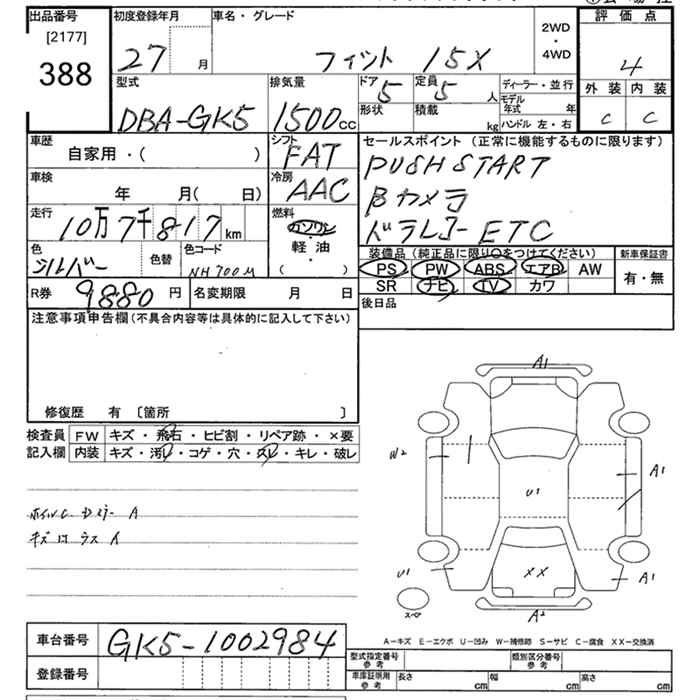 出品番号
[2177]
388
初度登録年月
27 月
車名・グレード
フィット 15X
2WD
・
4WD
評価点
4
外装 内装
C C
型式
DBA-GK5
排気量
1500cc
ドア
5
定員
5人
形状
積載
kg
ディーラー・並行
モデル年式 年
ハンドル 左・右
車歴
自家用・( )
シフト
FAT
セールスポイント (正常に機能するものに限ります)
PUSH START
Bカメラ
ドラレコー ETC
車検
年 月( 日)
冷房
AAC
走行
10万7千817km
燃料
ガソリン
・
軽・油
・
( )
色
シルバー
色替
色コード
NH700M
装備品 (純正品に限り○をつけてください)
PS PW ABS エアB AW
SR ナビ TV カワ
新車保証書
有・無
R券
9880円
名変期限 月 日
後日品
注意事項申告欄(不具合内容等は具体的に記入して下さい)
修復歴 有 〔箇所 〕
検査員
記入欄
FW キズ・飛石・ヒビ割・リペア跡・×要
内装 キズ・汚レ・コゲ・穴・スレ・キレ・破レ
A1
W2
A1
U1
U1
XX
A1
A2
スペア
A
A-キズ E-エクボ U-凹み W-補修跡 S-サビ C-腐食 XX-交換済
車台番号
GK5-1002984
登録番号
型式指定番号
参考
類別区分番号
参考
車庫証明用
参考
長さ cm
幅 cm
高さ cm